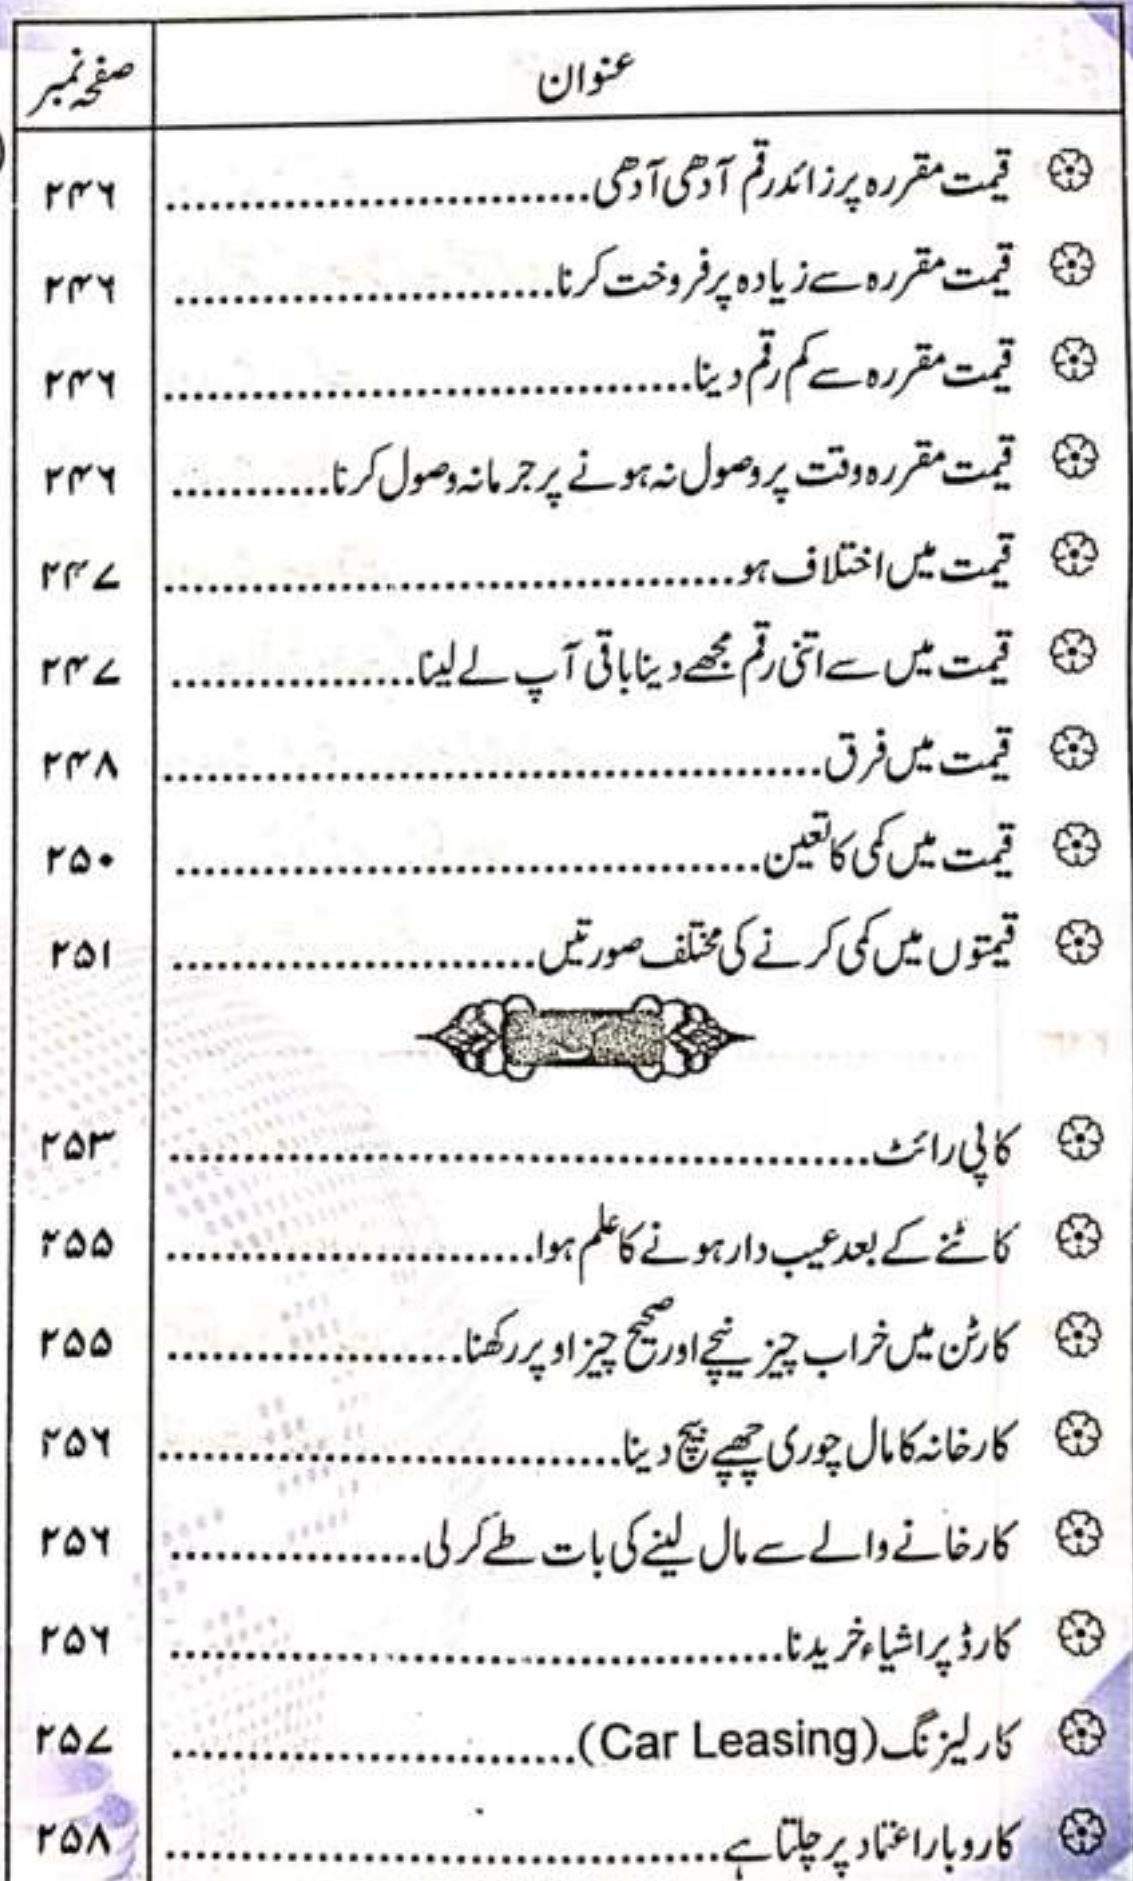 عنوان صفحہ نمبر
قیمت مقررہ پر زائد رقم آدھی آدھی.............................. ۲۴۶
قیمت مقررہ سے زیادہ پر فروخت کرنا.............................. ۲۴۶
قیمت مقررہ سے کم رقم دینا.............................. ۲۴۶
قیمت مقررہ وقت پر وصول نہ ہونے پر جرمانہ وصول کرنا........... ۲۴۶
قیمت میں اختلاف ہو.............................. ۲۴۷
قیمت میں سے اتنی رقم مجھے دینا باقی آپ لے لینا.................. ۲۴۷
قیمت میں فرق.............................. ۲۴۸
قیمت میں کمی کا تعین.............................. ۲۵۰
قیمتوں میں کمی کرنے کی مختلف صورتیں.............................. ۲۵۱
ک
کاپی رائٹ.............................. ۲۵۳
کاٹنے کے بعد عیب دار ہونے کا علم ہوا.............................. ۲۵۵
کارٹن میں خراب چیز نیچے اور صحیح چیز اوپر رکھنا.................... ۲۵۵
کارخانہ کا مال چوری چھپے بیچ دینا.............................. ۲۵۶
کارخانے والے سے مال لینے کی بات طے کر لی................. ۲۵۶
کارڈ پر اشیاء خریدنا.............................. ۲۵۶
کار لیزنگ (Car Leasing).............................. ۲۵۷
کاروبار اعتماد پر چلتا ہے.............................. ۲۵۸